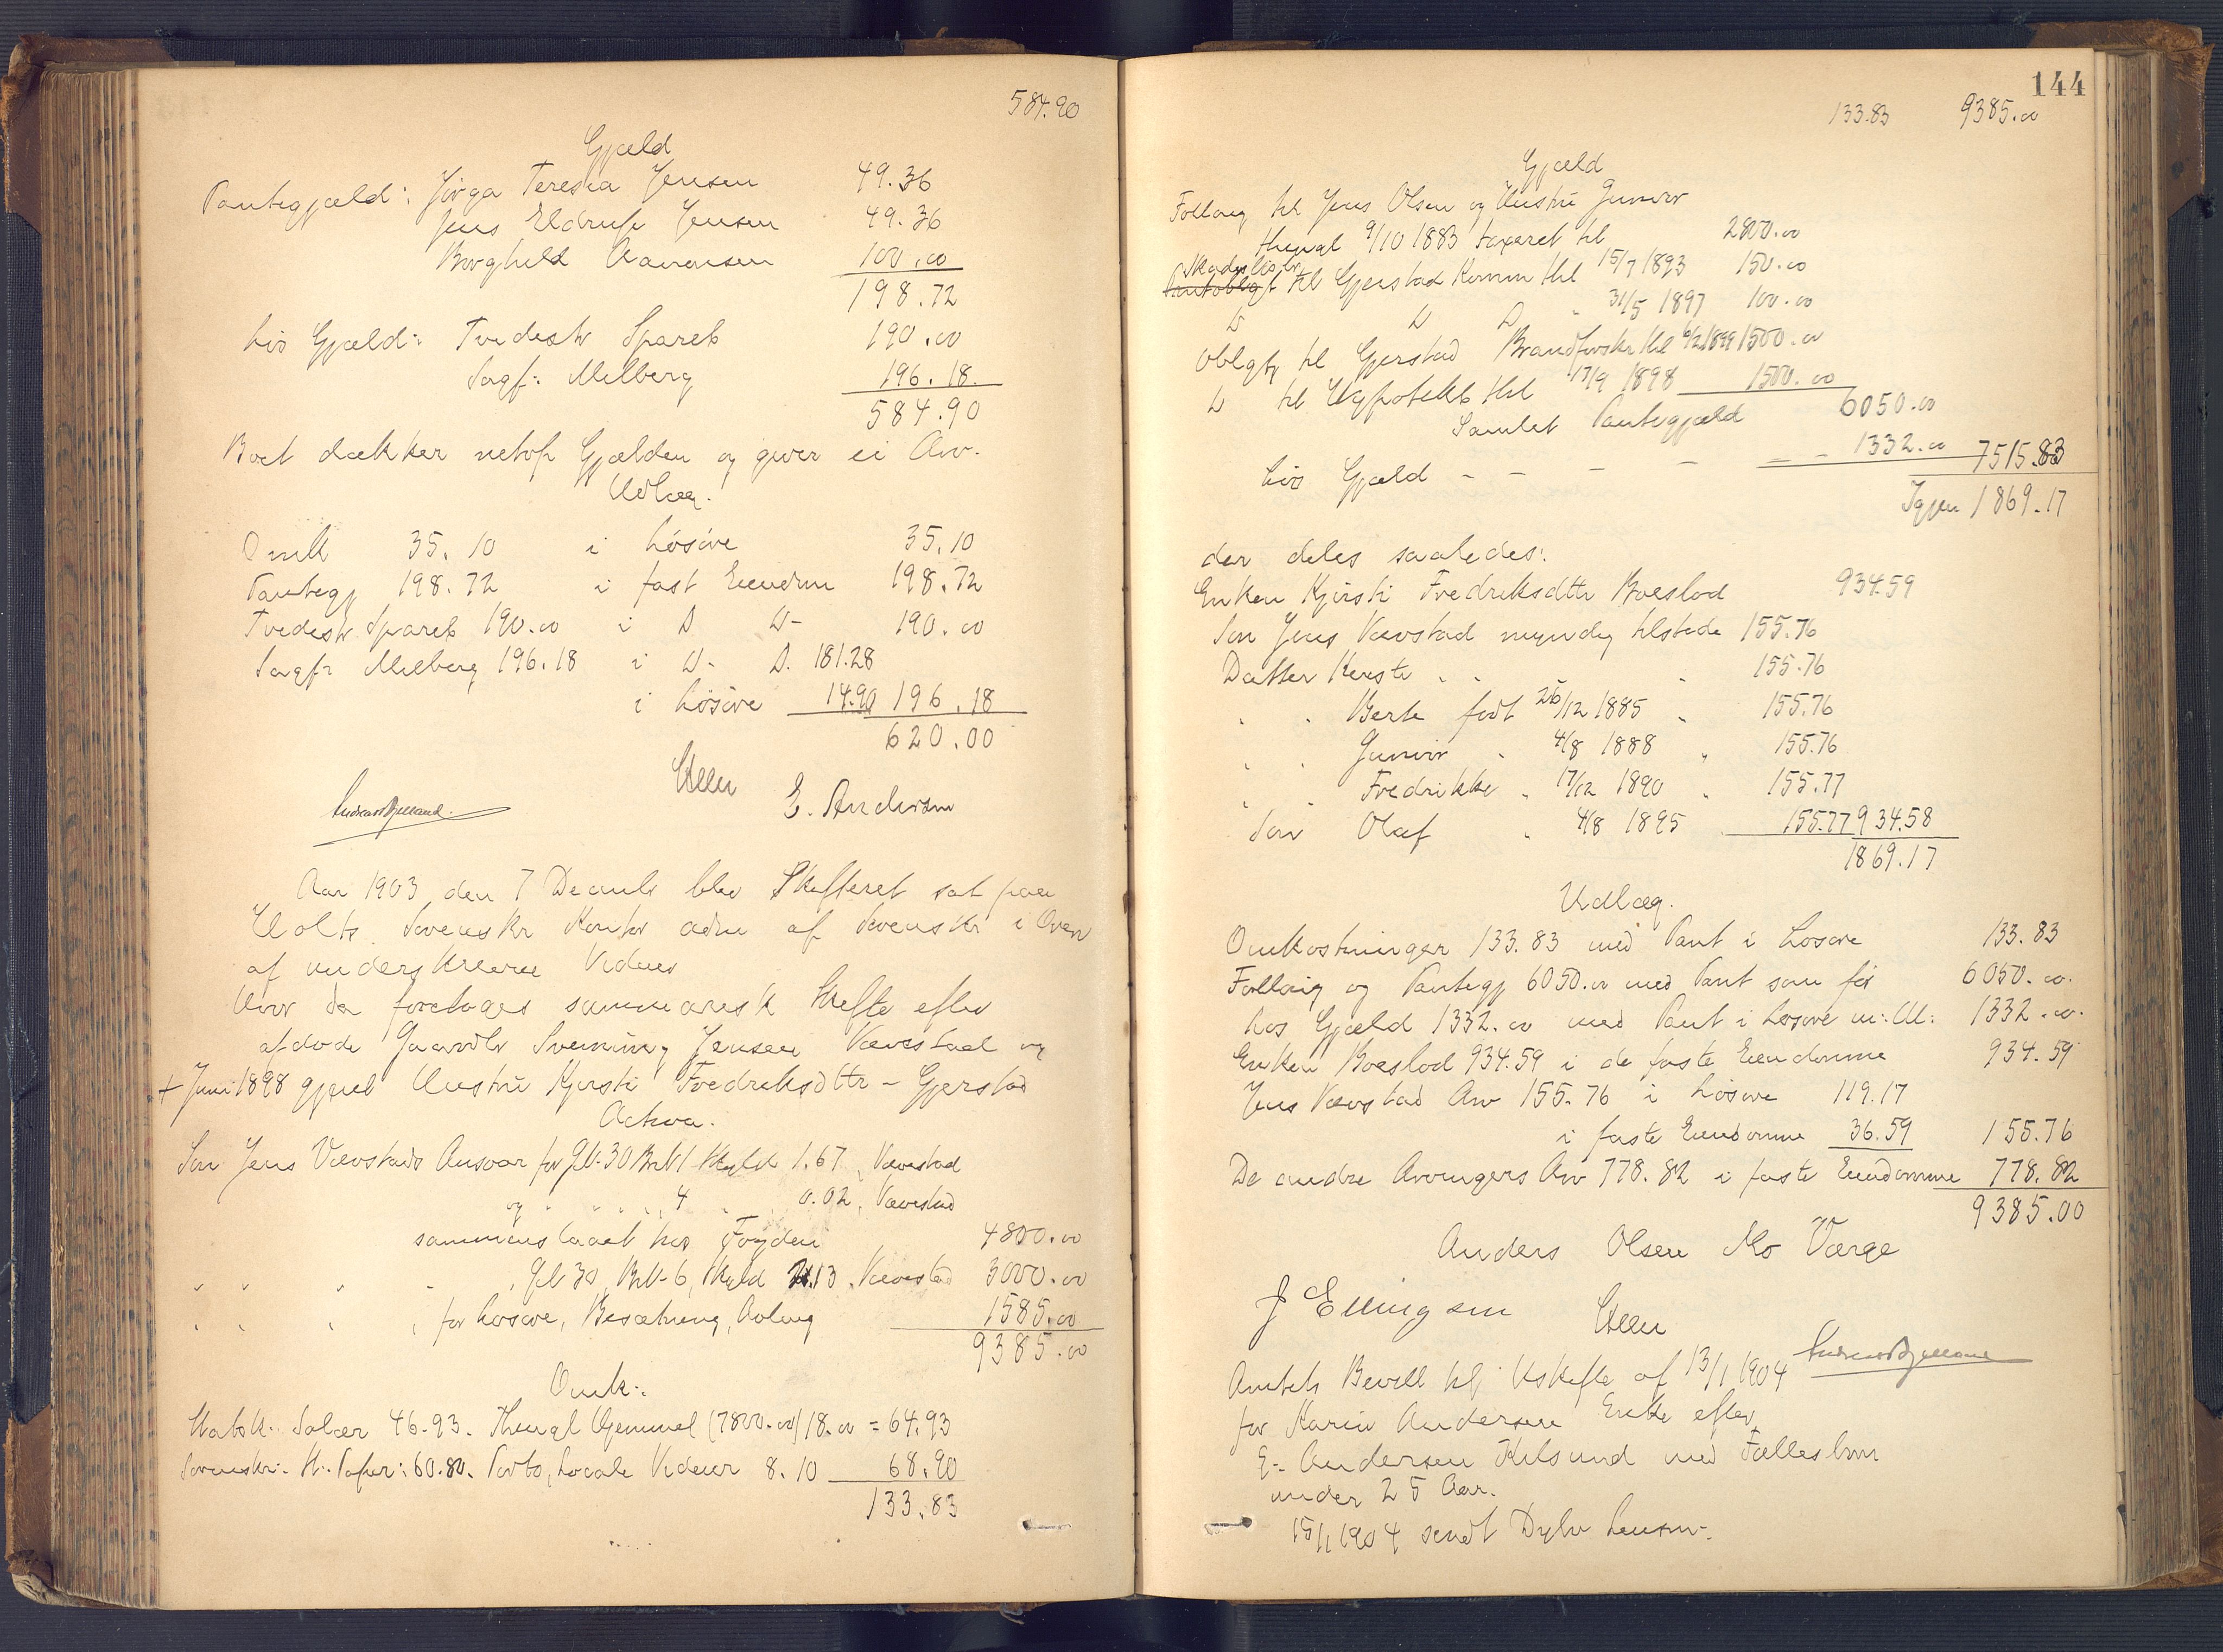 584.90
Gjæld
Pantegjæld: Jörga Teresia Jensen 49.36
Jens Eldrup Jensen 49.36
Borghild Aanonsen 100.00
198.72
Løs Gjæld: Tvedestr Spareb 190.00
Sagf: Melberg 196.18.
584.90
Boet dækker netop Gjælden og giver ei Arv.
Udlæg.
Omk 35.10 i Løsöre 35.10
Pantegj 198.72 i fast Eiendom 198.72
Tvedestr. Spareb 190.00 i D D- 190.00
Sagfr Melberg 196.18 i D- D. 181.28
i Løsöre 14.90 196.18
620.00
Hellu
E. Andersen
Aar 1903 den 7 Decemb blev Skifteret sat paa
Holts Sorenskr Kontor adm af Sorenskr i Overv
af underskrevne Vidner
Hvor da foretoges summarisk Skifte efter
afdøde Gaardbr Svenning Jensen Vævestad og
† Juni 1898 gjenl Hustru Kjersti Fredriksdttr - Gjerstad
Activa.
Søn Jens Vævstads Ansvar for Gb-30 Br N 1 Skyld 1.67, Vævestad
og " " " " 4 " " 0.02, Vævestad
sammenslaaet hos Fogden 4800.00
" " " " , Gb 30, Br N-6, Skyld 1.13. Vævestad 3000.00
" " " " for Løsöre, Besætning, Avling 1585.00
9385.00
Omk:.
Statsk:. Salær 46.93. Thingl Hjemmel (7800.00) 18.00 = 64.93
Sorenskr:. St:. Papir: 60.80. Porto, Locale Vidner 8.10 68.90
133.83
144
133.83 9385.00
Gjæld
Follaug til Jens Olsen og Hustru Gunvor
thingl 9/10 1883 taxeret til 2800.00
Skadesløsbr
Pantoblgt til Gjerstad Komm thl 15/7 1893 150.00
D D D " 31/5 1897 100.00
Oblgtg til Gjerstad Brandforskr thl 6/2 1899 1500.00
D til Hypotekb thl 17/9 1898 1500.00
Samlet Pantegjæld 6050.00
Løs Gjæld - - - - - - 1332.00 7515.83
Igjen 1869.17
der deles saaledes:
Enken Kjirsti Fredriksdttr Boeslod 934.59
Søn Jens Vævstad myndig tilstede 155.76
Datter Kerste " " " 155.76
" " Berte født 26/12 1885 " 155.76
" " Gunvor " 4/8 1888 " 155.76
" " Fredrikke " 17/12 1890 " 155.77
Søn Olaf " 4/8 1895 155.77 934.58
1869.17
Udlæg.
Omkostninger 133.83 med Pant i Løsøre 133.83
Follaug og Pantegj 6050.00 med Pant som før 6050.00.
Løs Gjæld 1332.00 med Pant i Løsøre m:M: 1332.00.
Enken Boeslod 934.59 i de faste Eiendomme 934.59
Jens Vævstad Arv 155.76 i Løsøre 119.17
i faste Eiendomme 36.59 155.76
De andre Arvingers Arv 778.82 i faste Eiendomme 778.82
9385.00
Anders Olsen Mo Værge
J Ellingsen
Hellu
Amtets Bevill til Uskifte af 13/1 1904
for Karen Andersen Enke efter
E- Andersen Kilsund med Fællesbørn
under 25 Aar.
15/1 1904 sendt Dybv Lensm-.